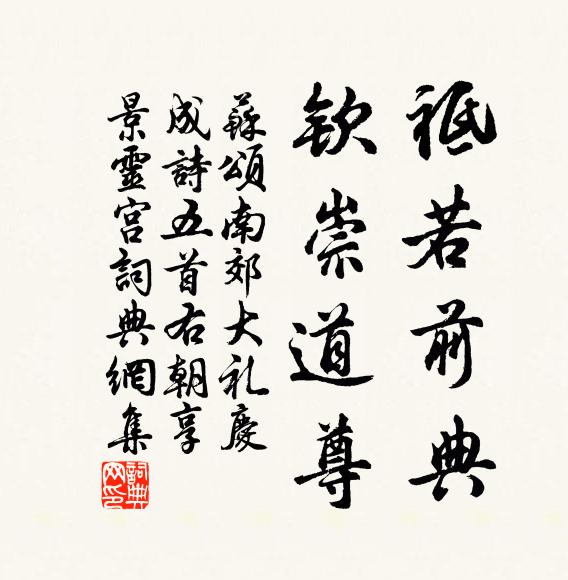 祗若前典
欽崇道尊
蘇頌南郊大礼慶
成詩五首右朝享
景靈宮詞典網集
詞典網印